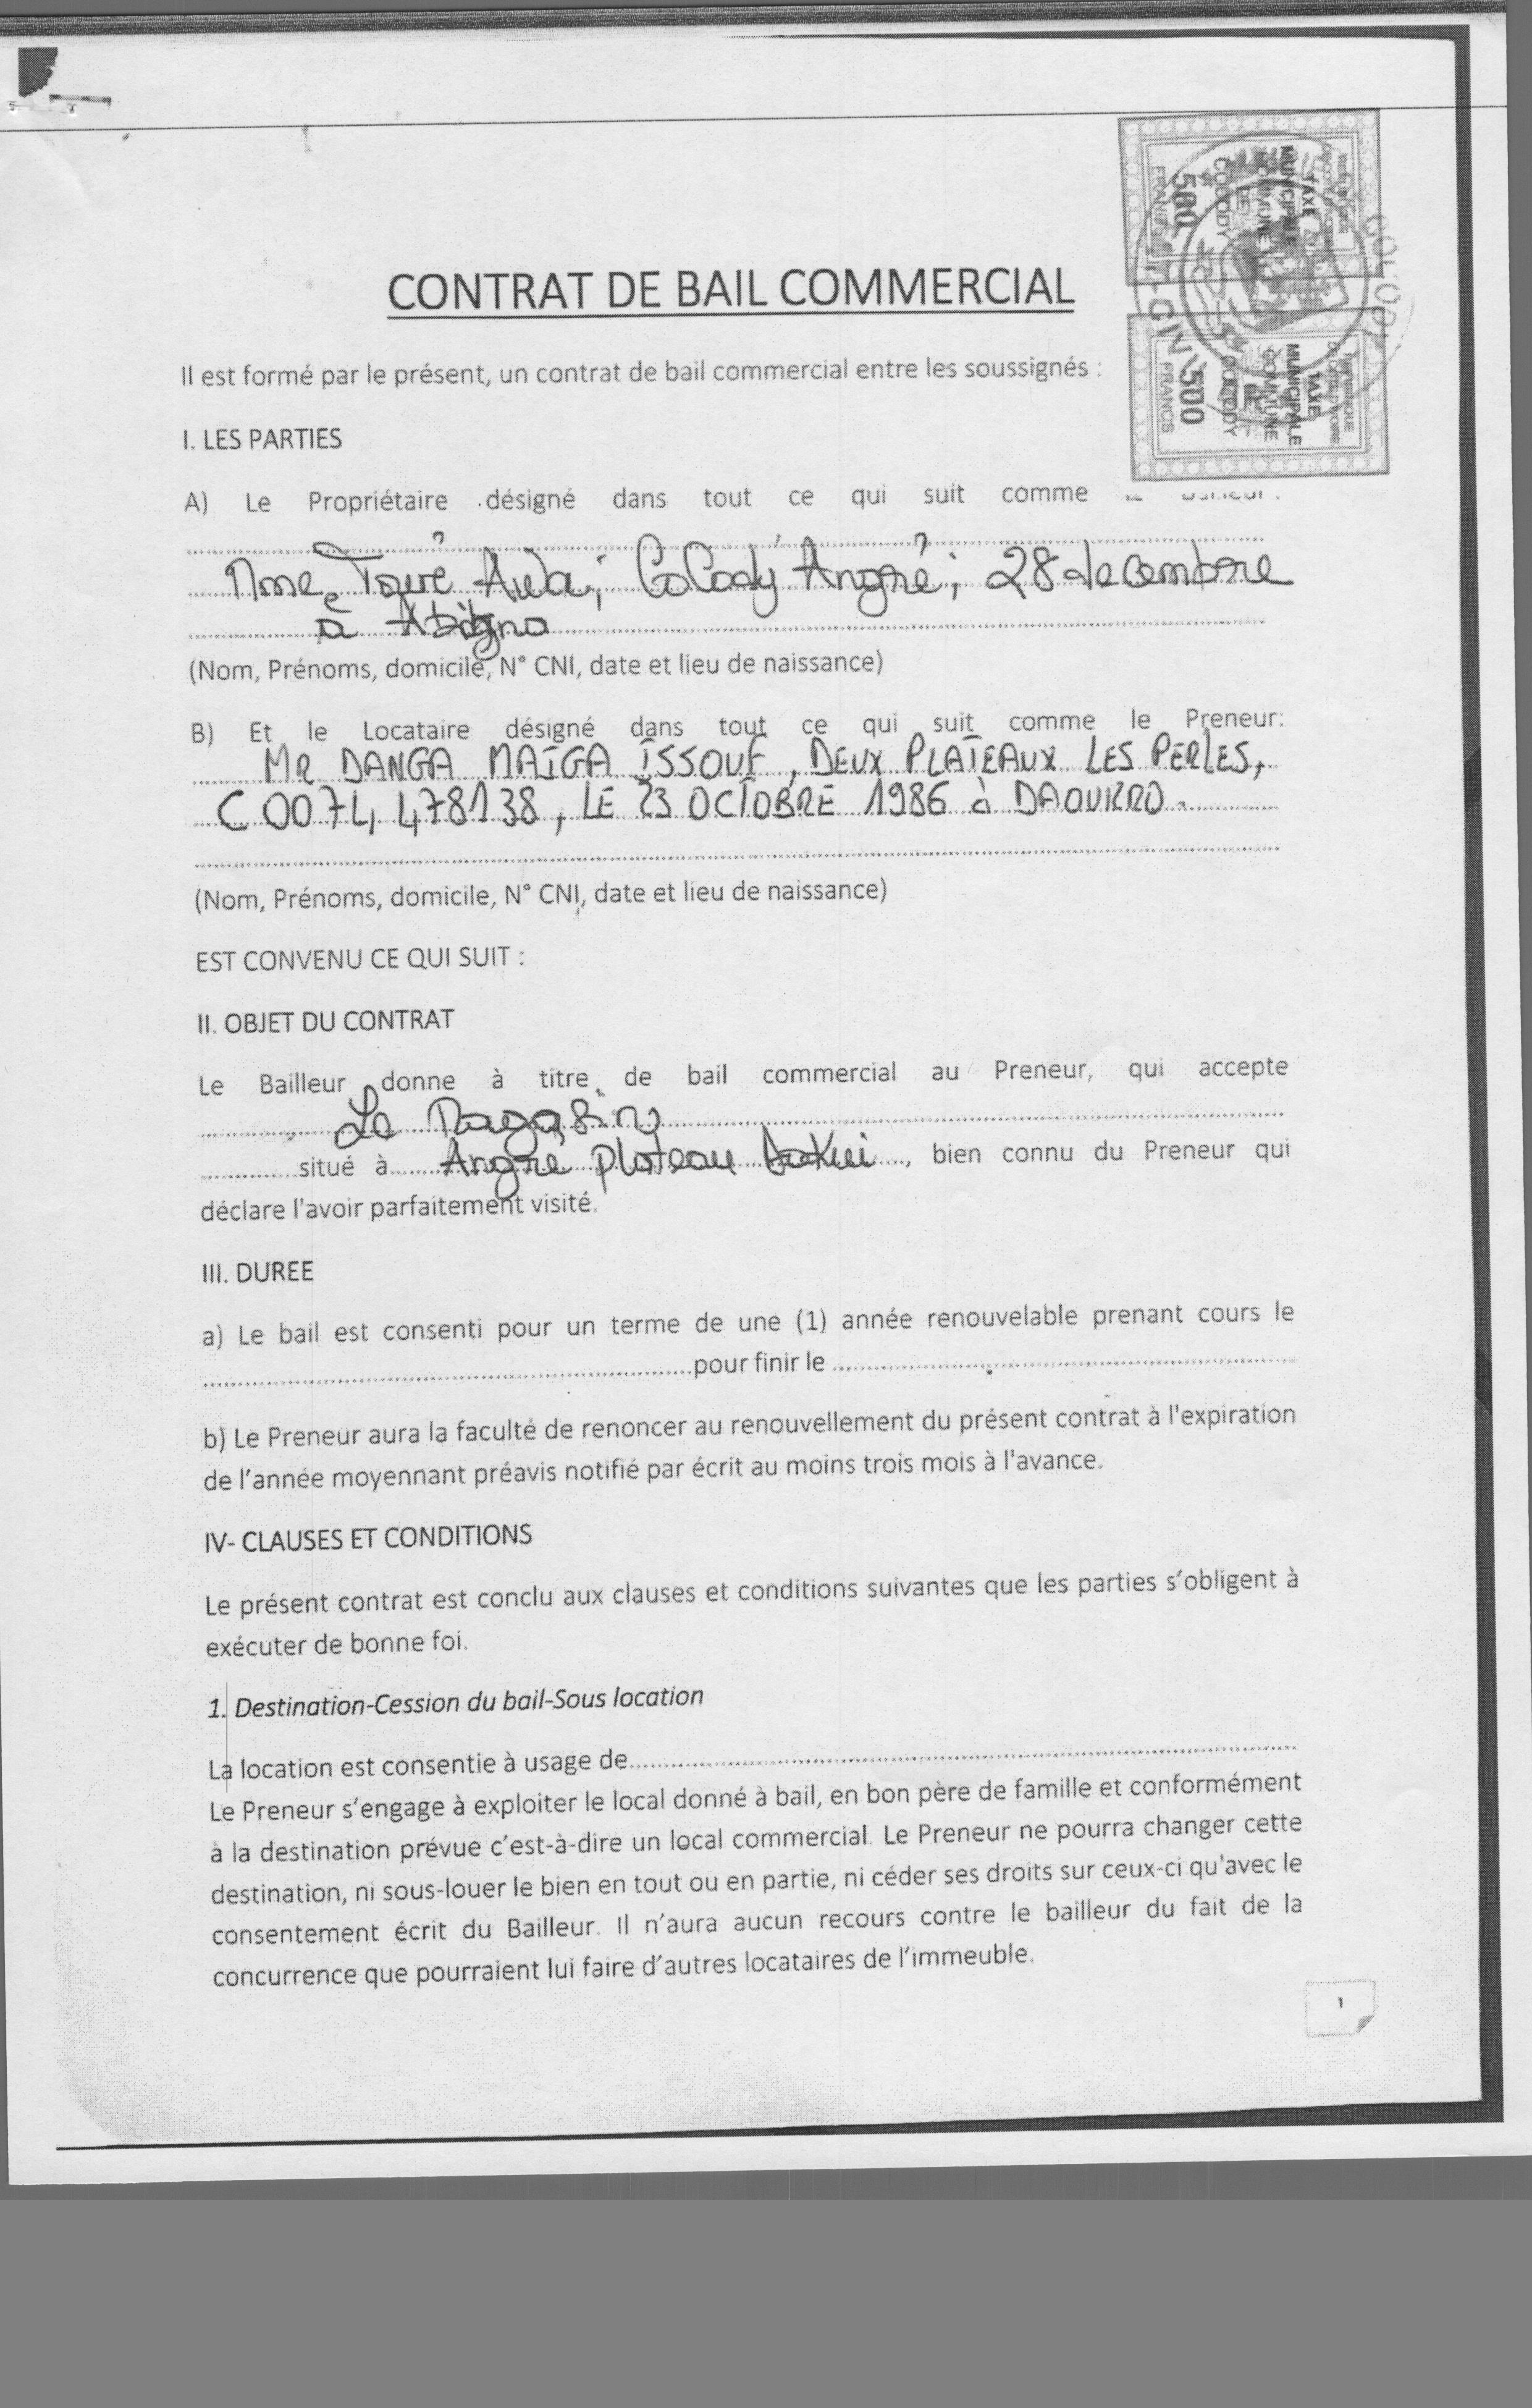 CONTRAT DE BAIL COMMERCIAL
TAXE
MUNICIPALE
COMMUNE
DE
COCODY
500
FRANCS
TAXE
MUNICIPALE
COMMUNE
DE
COCODY
500
FRANCS
Il est formé par le présent, un contrat de bail commercial entre les soussignés :
I. LES PARTIES
A) Le Propriétaire désigné dans tout ce qui suit comme
Mme Touré Awa, CoCody Angré, 28 decembre
à
(Nom, Prénoms, domicile, N° CNI, date et lieu de naissance)
B) Et le Locataire désigné dans tout ce qui suit comme le Preneur:
MR DANGA MAÏGA ISSOUF, DEUX PLATEAUX LES PERLES,
C 0074 478138, LE 23 OCTOBRE 1986 à DAOUKRO.
(Nom, Prénoms, domicile, N° CNI, date et lieu de naissance)
EST CONVENU CE QUI SUIT :
II. OBJET DU CONTRAT
Le Bailleur donne à titre de bail commercial au Preneur, qui accepte
Le Magasin
situé à Angré plateau Dokui, bien connu du Preneur qui
déclare l'avoir parfaitement visité.
III. DUREE
a) Le bail est consenti pour un terme de une (1) année renouvelable prenant cours le
pour finir le
b) Le Preneur aura la faculté de renoncer au renouvellement du présent contrat à l'expiration
de l'année moyennant préavis notifié par écrit au moins trois mois à l'avance.
IV- CLAUSES ET CONDITIONS
Le présent contrat est conclu aux clauses et conditions suivantes que les parties s'obligent à
exécuter de bonne foi.
1. Destination-Cession du bail-Sous location
La location est consentie à usage de
Le Preneur s'engage à exploiter le local donné à bail, en bon père de famille et conformément
à la destination prévue c'est-à-dire un local commercial. Le Preneur ne pourra changer cette
destination, ni sous-louer le bien en tout ou en partie, ni céder ses droits sur ceux-ci qu'avec le
consentement écrit du Bailleur. Il n'aura aucun recours contre le bailleur du fait de la
concurrence que pourraient lui faire d'autres locataires de l'immeuble.
1